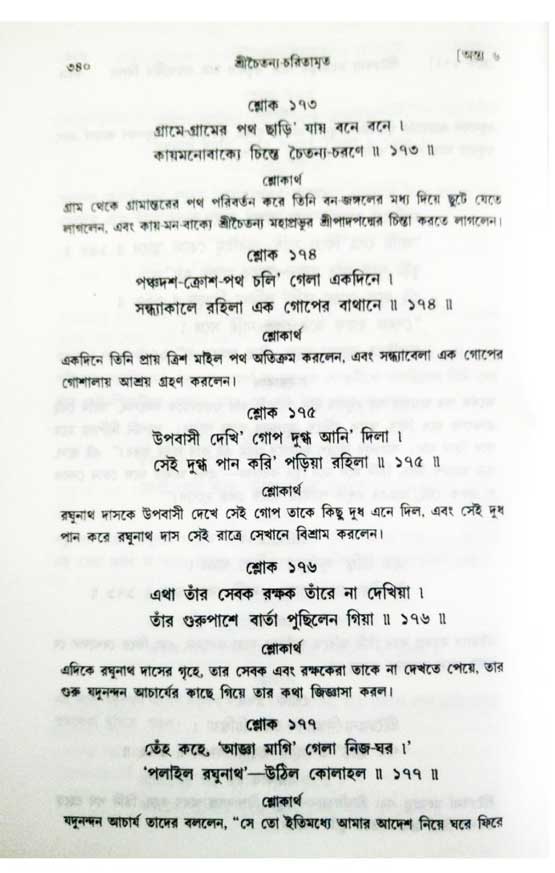 ৩৪০ শ্রীচৈতন্য-চরিতামৃত [অন্ত্য ৬
শ্লোক ১৭৩
গ্রামে-গ্রামের পথ ছাড়ি' যায় বনে বনে ।
কায়মনোবাক্যে চিন্তে চৈতন্য-চরণে ॥ ১৭৩ ॥
শ্লোকার্থ
গ্রাম থেকে গ্রামান্তরের পথ পরিবর্তন করে তিনি বন-জঙ্গলের মধ্য দিয়ে ছুটে যেতে
লাগলেন, এবং কায়-মন-বাক্যে শ্রীচৈতন্য মহাপ্রভুর শ্রীপাদপদ্মের চিন্তা করতে লাগলেন।
শ্লোক ১৭৪
পঞ্চদশ-ক্রোশ-পথ চলি' গেলা একদিনে ।
সন্ধ্যাকালে রহিলা এক গোপের বাথানে ॥ ১৭৪ ॥
শ্লোকার্থ
একদিনে তিনি প্রায় ত্রিশ মাইল পথ অতিক্রম করলেন, এবং সন্ধ্যাবেলা এক গোপের
গোশালায় আশ্রয় গ্রহণ করলেন।
শ্লোক ১৭৫
উপবাসী দেখি' গোপ দুগ্ধ আনি' দিলা ।
সেই দুগ্ধ পান করি' পড়িয়া রহিলা ॥ ১৭৫ ॥
শ্লোকার্থ
রঘুনাথ দাসকে উপবাসী দেখে সেই গোপ তাকে কিছু দুধ এনে দিল, এবং সেই দুধ
পান করে রঘুনাথ দাস সেই রাত্রে সেখানে বিশ্রাম করলেন।
শ্লোক ১৭৬
এথা তাঁর সেবক রক্ষক তাঁরে না দেখিয়া ।
তাঁর গুরুপাশে বার্তা পুছিলেন গিয়া ॥ ১৭৬ ॥
শ্লোকার্থ
এদিকে রঘুনাথ দাসের গৃহে, তার সেবক এবং রক্ষকেরা তাকে না দেখতে পেয়ে, তার
গুরু যদুনন্দন আচার্যের কাছে গিয়ে তার কথা জিজ্ঞাসা করল।
শ্লোক ১৭৭
তেঁহ কহে, 'আজ্ঞা মাগি' গেলা নিজ-ঘর ।'
'পলাইল রঘুনাথ'—উঠিল কোলাহল ॥ ১৭৭ ॥
শ্লোকার্থ
যদুনন্দন আচার্য তাদের বললেন, "সে তো ইতিমধ্যে আমার আদেশ নিয়ে ঘরে ফিরে